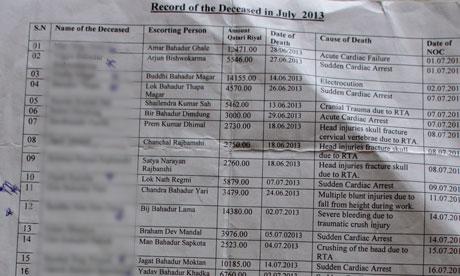 Record of the Deceased in July 2013
S.N Name of the Deceased Escorting Person Amount Qatari Riyal Date of Death Cause of Death Date of NOC
01 Amar Bahadur Ghale 12471.00 28/06/2013 Acute Cardiac Failure 01.07.201
02 Arjun Bishwokarma 5546.00 27.06.2013 Sudden Cardiac Arrest 01.07.201
03 Buddhi Bahadur Magar 14155.00 14.06.2013 Electrocution 02.07.201
04 Lok Bahadur Thapa 4570.00 26.06.2013 Sudden Cardiac Arrest 02.07.201
Magar
05 Shailendra Kumar Sah 5462.00 13.06.2013 Cranial Trauma due to RTA
06 Bir Bahadur Dimdung 3000.00 29.06.2013 Acute Cardiac Arrest
07 Prem Kumar Dhimal 2730.00 18.06.2013 Head injuries skull fracture 08.07.201
cervical vertebrae due to RTA
08 Chanchal Rajbamshi 2750.00 18.06.2013 Head injuries fracture skull
due to RTA
09 Satya Narayan 2760.00 18.06.2013 Head injuries fracture skull
Rajbamshi due to RTA.
10 Lok Nath Regmi 5879.00 07.07.2013 Sudden Cardiac Arrest 09.07.201
11 Chandra Bahadur Yari 3479.00 24.06.2013 Multiple blunt injuries due to 11.07.201
fall from height during work.
12 Bij Bahadur Lama 14380.00 02.07.2013 Severe bleeding due to 14.07.201
traumatic crush injury
13 Braham Dev Mandal 3976.00 05.07.02013 Sudden Cardiac Arrest 14.07.201
14 Man Bahadur Sapkota 2523.00 04.07.2013 Crushing of the head due to 15.07.201
RTA.
15 Jagat Bahadur Moktan 10185.00 14.07.2013 Sudden Cardiac Arrest
16 Yadav Bahadur Khadka 6760.00 Sudden Cardiac Arrest